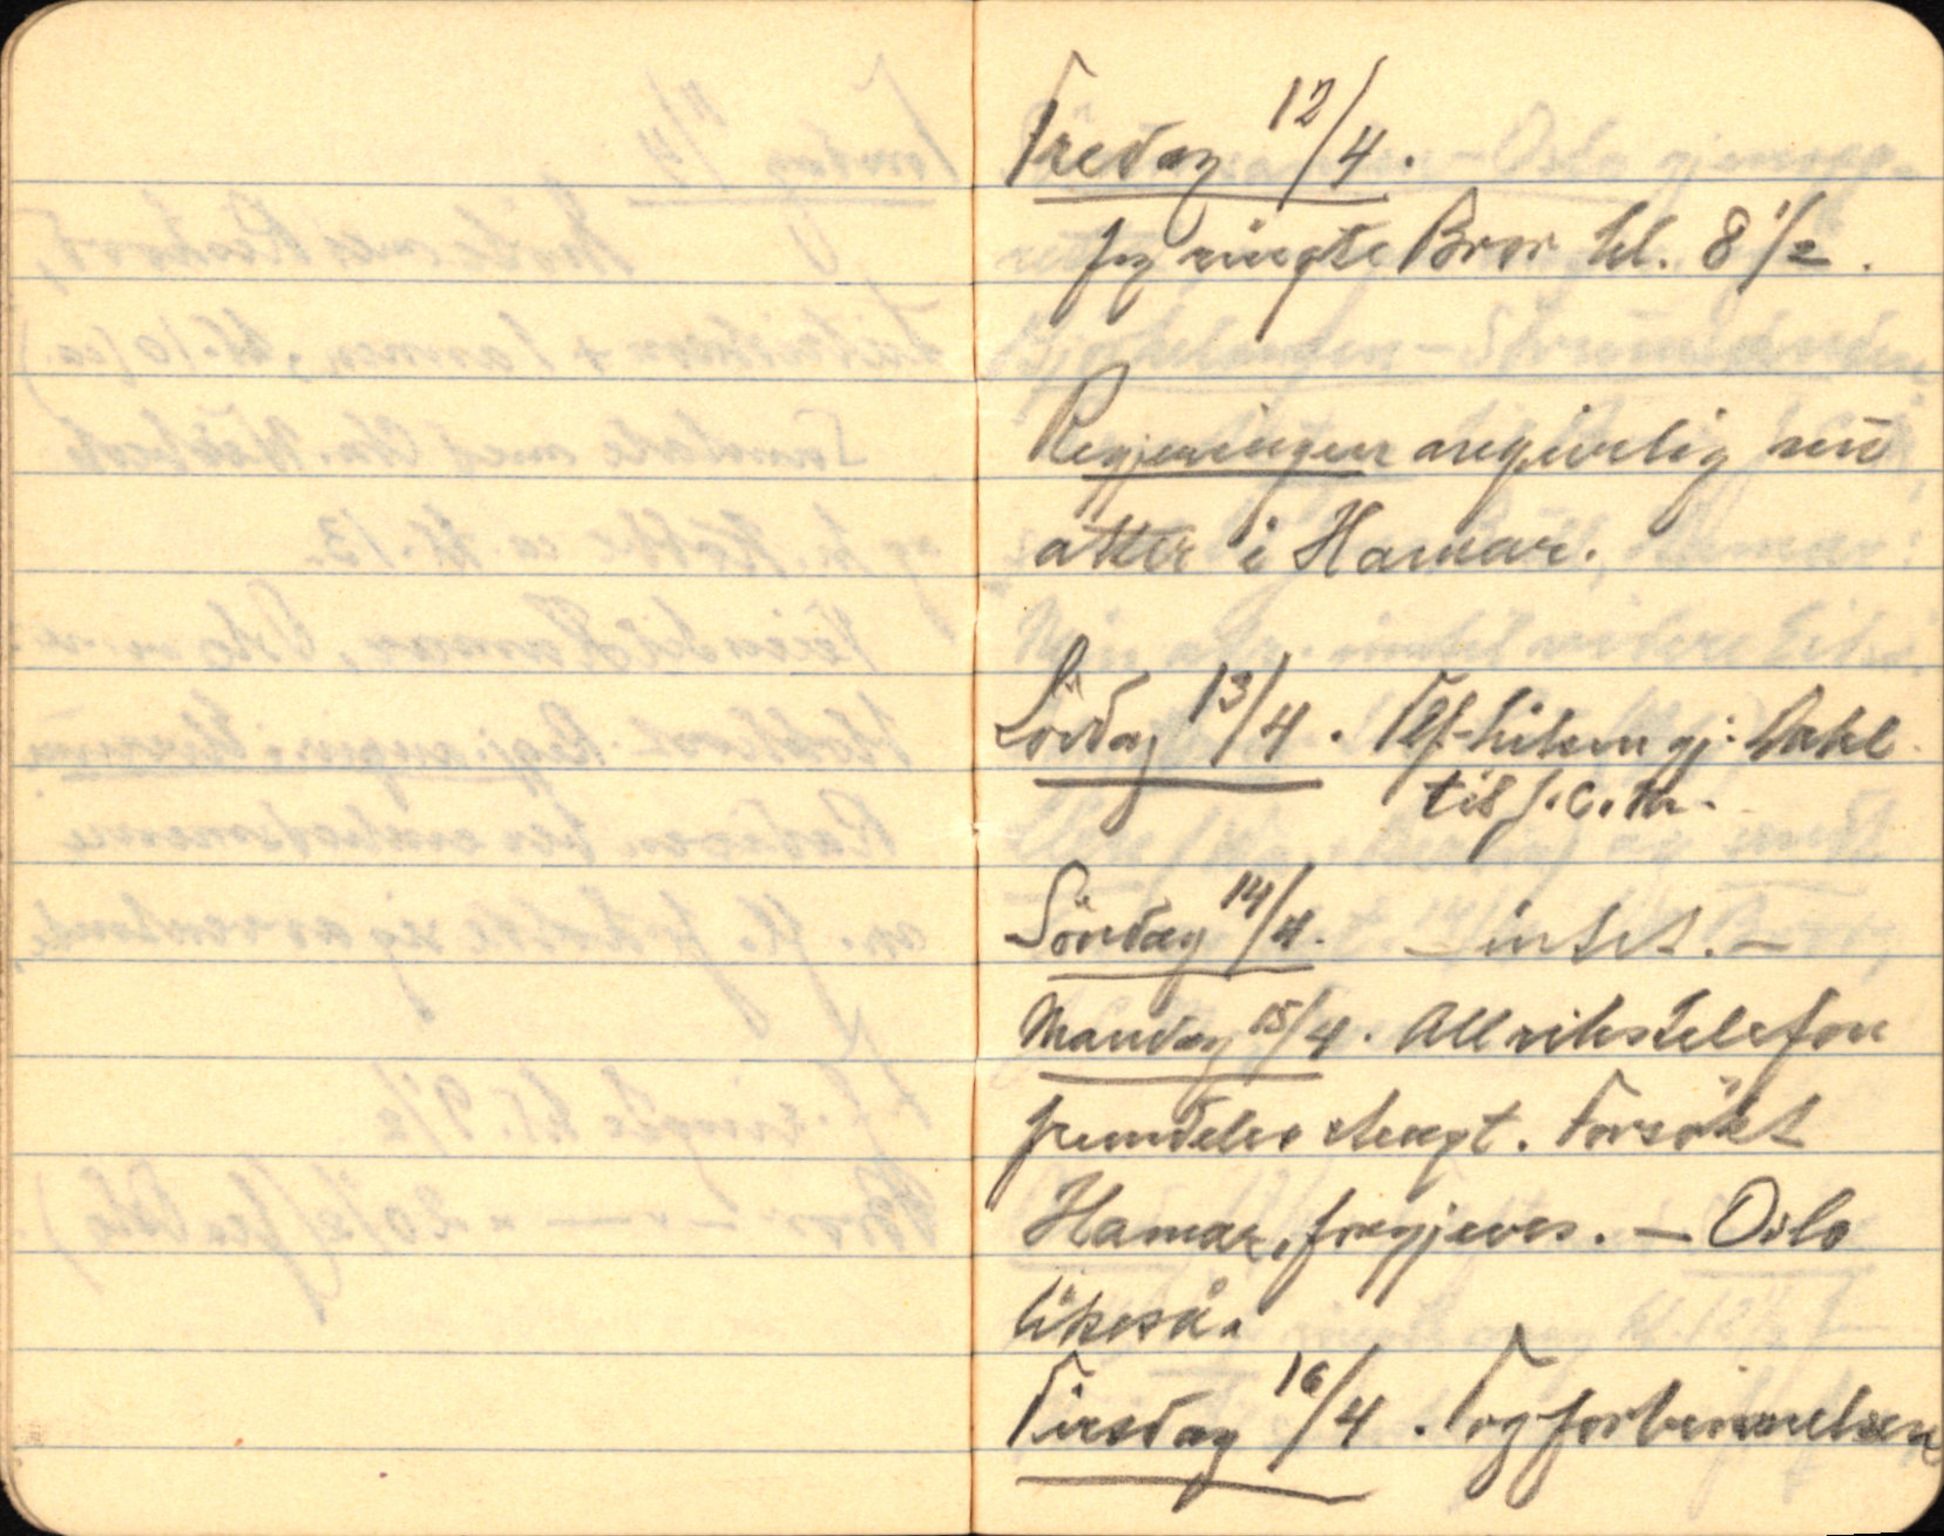 Fredag 12/4.
Jeg ringte Bror kl. 8 1/2.
Regjeringen angivelig nu
atter i Hamar.
Lördag 13/4. Tlf-hilsen gj. Dahl
til J.C.M.
Söndag 14/4. — intet. —
Mandag 15/4. All rikstelefon
fremdeles stengt. Forsökt
Hamar, forgjeves. — Oslo
likeså.
Tirsdag 16/4. Togforbindelsen